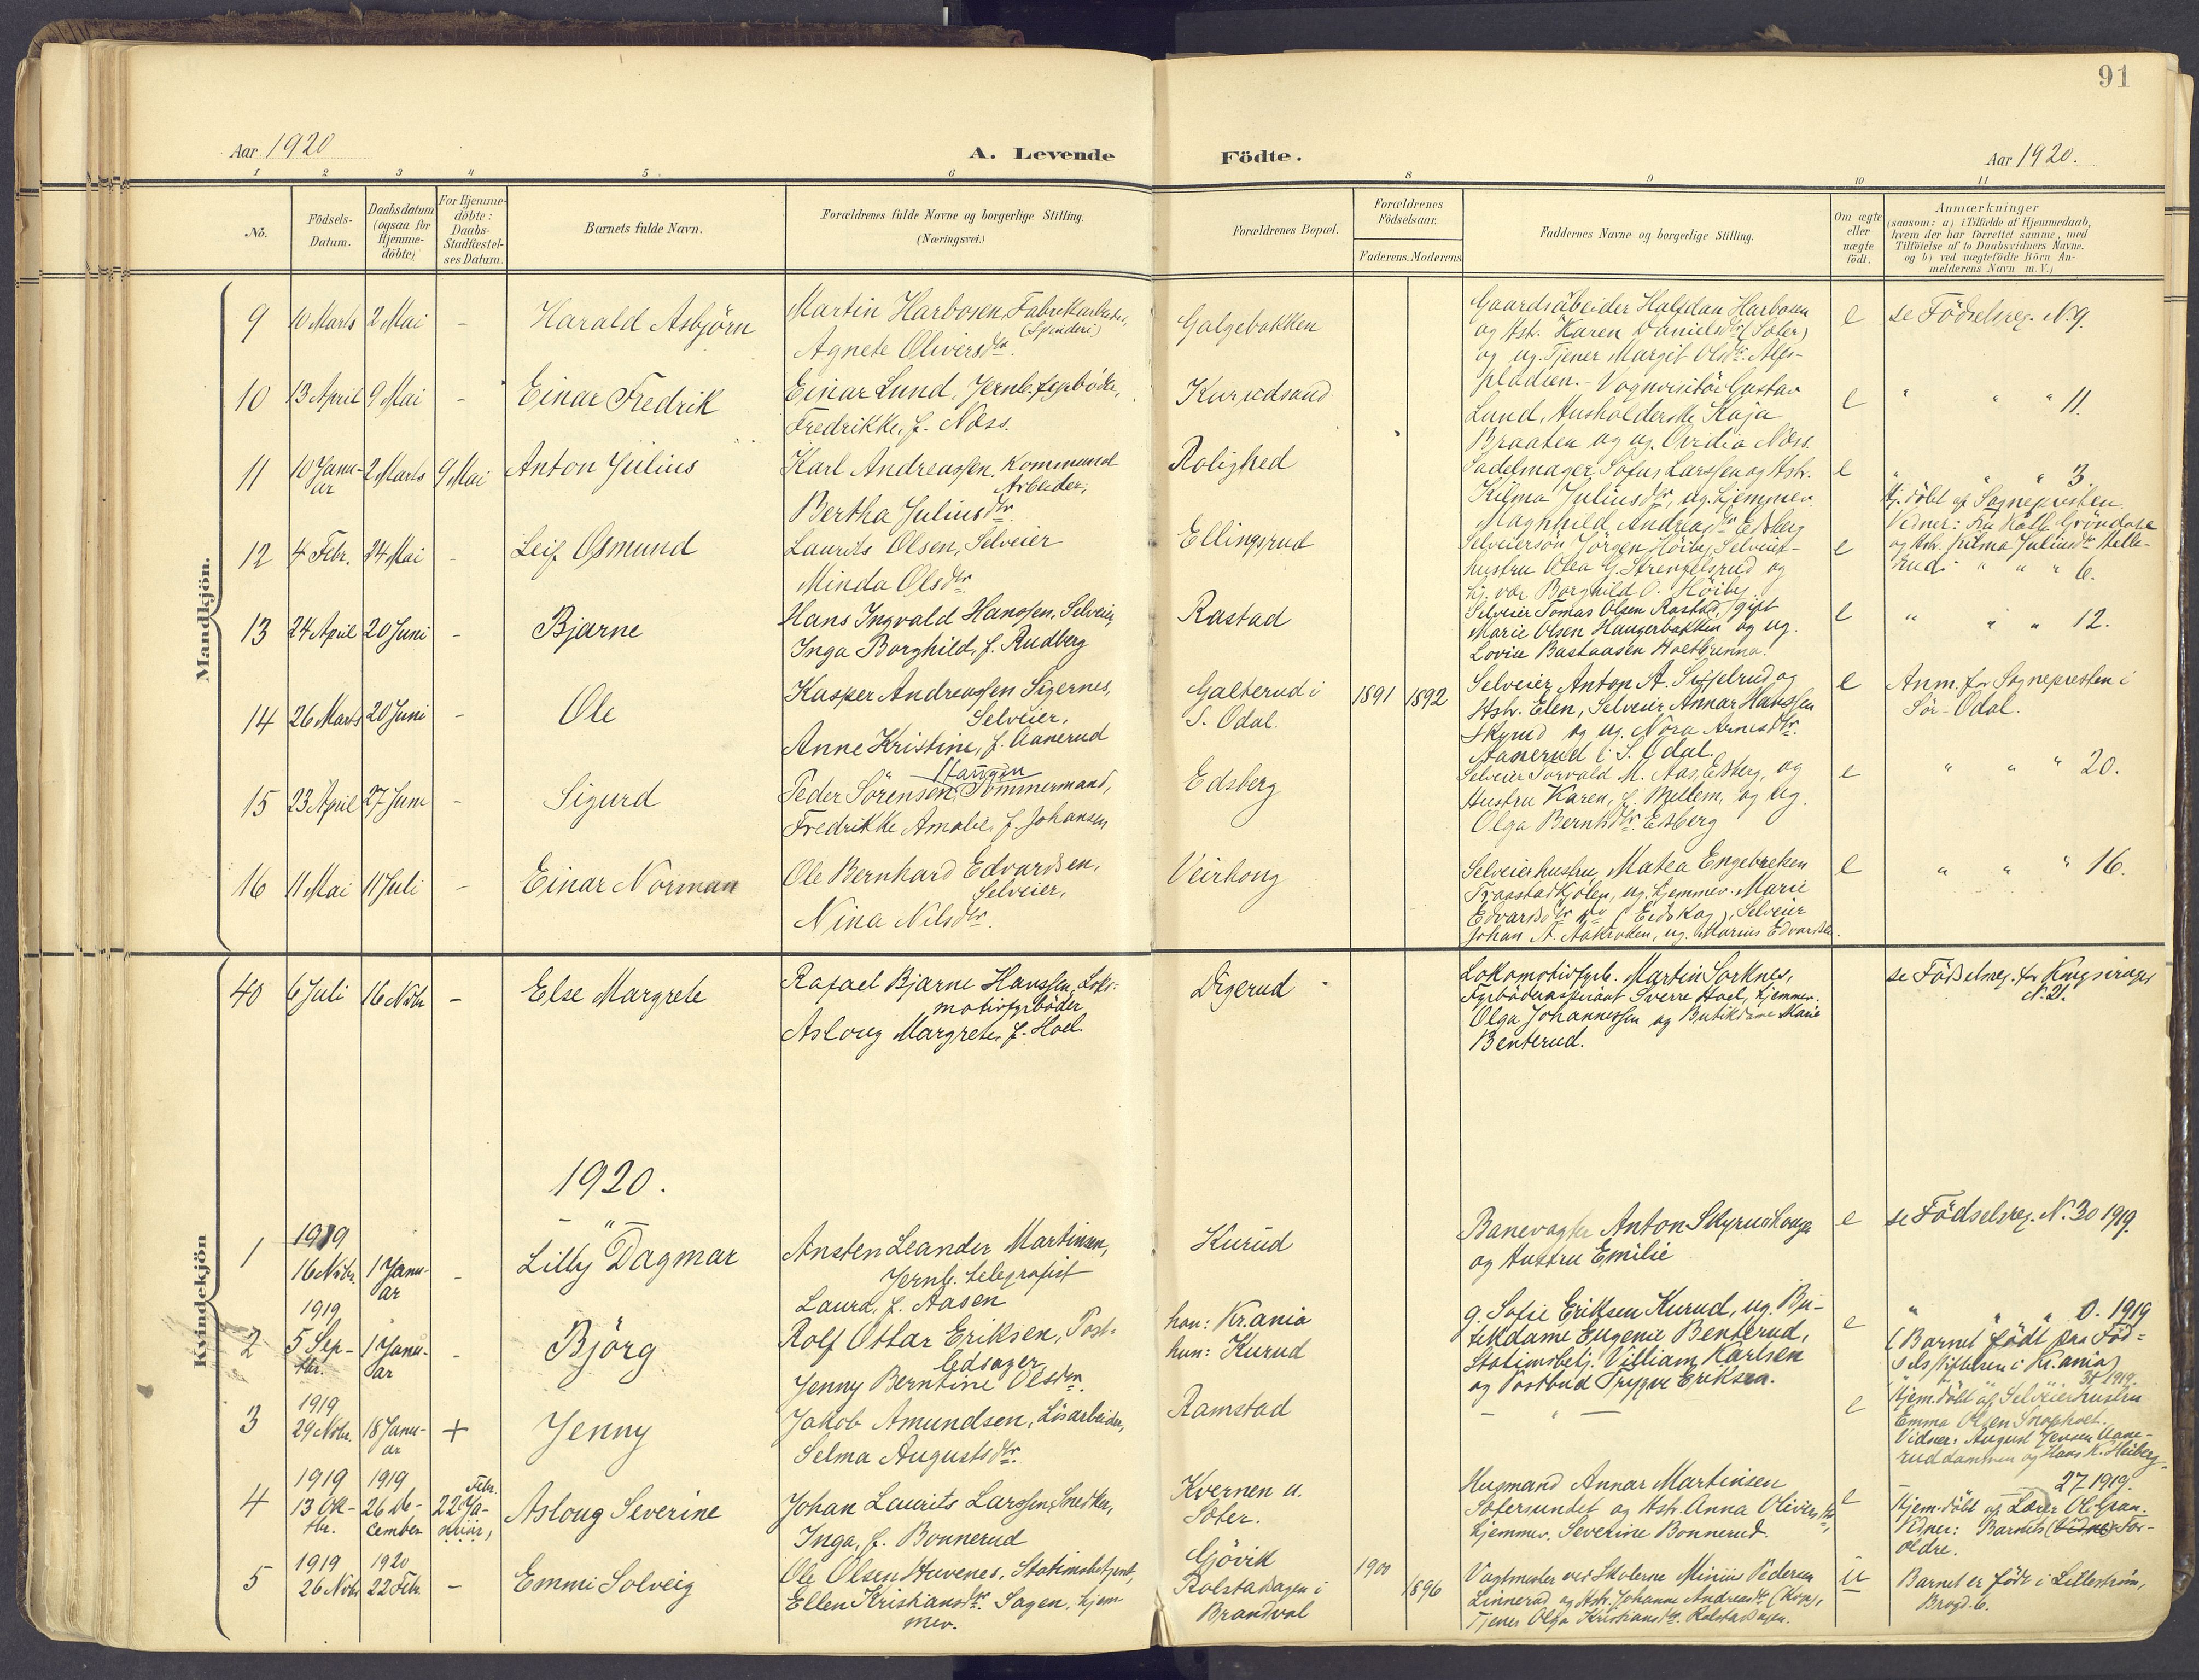 91
Aar 1920
A. Levende
Födte.
Aar 1920.
1 2 3 4 5 6 8 9 10 11
No.
Födsels-
Datum.
Daabsdatum
(ogsaa for
Hjemme-
döbte)
For Hjemme-
döbte:
Daabs-
Stadfæstel-
ses Datum.
Barnets fulde Navn.
Forældrenes fulde Navne og borgerlige Stilling.
(Næringsvei.)
Forældrenes Bopæl.
Forældrenes
Födselsaar.
Faderens. Moderens
Faddernes Navne og borgerlige Stilling.
Om ægte
eller
uægte
födt.
Anmærkninger
(saasom: a) i Tilfælde af Hjemmedaab,
hvem der har forrettet samme, med
Tilföielse af to Daabsvidners Navne.
og b) ved uægtefödte Börn An-
melderens Navn m.V.)
Mandkjön.
9
10 Marts
2 Mai
-
Harald Asbjörn
Martin Harbosen, Fabrikarbeider,
(Spinderi)
Agnete Oliversdtr.
Galgebakken
Gaardsarbeider Halfdan Harbosen
og Hstr. Karen Danielsdtr (Sæter)
og ug. Tjener Margit Olsdtr. Alfs-
pladsen.
e
se Födselsreg. N. 9.
10
13 April
9 Mai
-
Einar Fredrik
Einar Lund, Jernb. fyrböder,
Fredrikke, f. Næss.
Kurudsand
- Vognvisitör Gustav
Lund, Husholderske Kaja
Braaten og ug. Ovidia Næss.
e
" " " 11.
11
10 Janu-
ar
2 Marts
9 Mai
Anton Julius
Karl Andreassen, Kommunal
Arbeider,
Bertha Juliusdtr.
Rolighed
Sadelmager Sofus Larssen og Hstr.
Hilma Juliusdtr, ug. hjemmev.
Magnhild Andreasdtr Edsberg
e
" " " 3.
Hj. döbt af Sognepresten.
Vidner: Fru Gröndahl
og Hstr. Hilma Juliusdtr Melle-
rud.
12
4 Febr.
24 Mai
-
Leif Osmund
Laurits Olsen, Selveier
Minda Olsdtr
Ellingsrud
Selveiersön Jörgen Höiby, Selveier-
hustru Olea G. Strengelsrud og
hj. vær. Borghild O. Höiby.
e
" " " 6.
13
24 April
20 Juni
-
Bjarne
Hans Ingvald Hanssen, Selveier,
Inga Borghild, f. Rudberg
Rastad
Selveier Tomas Olsen Rastad, gift
Marie Olsen Haugerbakken og ug.
Lovise Bastaasen Holtbrenna.
e
" " " 12.
14
26 Marts
20 Juni
-
Ole
Kasper Andreassen Sigernes,
Selveier,
Anne Kristine, f. Aanerud
Galterud i
S. Odal.
1891
1892
Selveier Anton A. Siffelrud og
Hstr. Elen, Selveier Annar Hanssen
Skyrud og ug. Nora Arnesdtr.
Aanerud i S. Odal.
e
Anm. for Sognepresten i
Sör-Odal.
15
23 April
27 Juni
-
Sigurd
Haugen
Peder Sörensen, Tömmermand,
Fredrikke Amalie, f. Johansen
Edsberg
Selveier Torvald M. Aas, Edsberg, og
Hustru Karen, f. Mellem, og ug.
Olga Bernhdtr. Edsberg
e
" " " 20.
16
11 Mai
11 Juli
-
Einar Norman
Ole Bernhard Edvardsen,
Selveier,
Nina Nilsdtr.
Veirhaug
Selveierhustru Matea Engebretsen
Fraastadkjölen, ug. hjemmev. Marie
Edvardsdtr (Eidskog), Selveier
Johan A. Aakroken, ug. Marius Edvardsen.
e
" " " 16.
Kvindekjön
40
6 Juli
16 Novbr
-
Else Margrete
Rafael Bjarne Hanssen, Loko-
motivfyrböder
Aslaug Margrete, f. Hoel.
Digerud
Lokomotivfyrb. Martin Sorknes,
Fyrböderaspirant Sverre Hoel, hjemmev.
Olga Johannessen og Butikdame Marie
Benterud.
se Födselsreg. for Kongsvinger
N. 21.
1920.
1
1919
16 Novbr.
1 Janu-
ar
-
Lilly Dagmar
Ansten Leander Martinsen,
Jernb. telegrafist
Laura, f. Aasen
Kurud
Banevogter Anton Skyrudshaugen
og Hustru Emilie
e
se Födselsreg. N. 30 1919.
2
1919
5 Sep-
tbr.
1 Janu-
ar
-
Björg
Rolf Ottar Eriksen, Post-
ledsager
Jenny Berntine Olsdtr.
han: Kr.ania
hun: Kurud
g. Sofie Eriksen Kurud, ug. Bu-
tikdame Eugenie Benterud,
Stationsbetj. Villiam Karlsen
og Postbud Trygve Eriksen.
e
" " " 0. 1919
(Barnet födt paa Föd-
selsstiftelsen i Kr.ania)
3
1919
29 Novbr.
18 Janu-
ar
+
Jenny
Jakob Amundsen, Lösarbeider,
Selma Augustsdtr.
Ramstad
- " -
e
31 1919.
Hjem. döbt af Selveierhustru
Emma Olsen Snapholt.
Vidner: August Jensen Aane-
ruddammen og Hans K. Heiberg.
4
1919
13 Ok-
tbr.
1919
26 De-
cember
Febr.
22 Ja-
nuar,
Aslaug Severine
Johan Laurits Larssen, Snedker,
Inga, f. Bonnerud
Kvernen u.
Sæter.
Husmand Annar Martinsen
Sætersundet og Hstr. Anna Oliversdtr,
hjemmev. Severine Bonnerud.
e
27 1919.
Hjem. döbt af Lærer Ole Gran.
Vidner: Barnets For-
ældre.
5
1919
26 Novbr
1920
22 Febr.
-
Emmi Solveig
Ole Olsen Huvenes, Stationsbetjent,
Ellen Kristiansdtr. Sagen, hjem
mev.
Gjövik
Rolstadsagen i
Brandval
1900
1896
Vagtmester ved Skolerne Minius Pedersen
Linnerud og Hstr. Johanne Andreasdtr,
Tjener Olga Kristiansdtr. Rolstadsagen.
u
Barnet er födt i Lilleström,
Brogd. 6.